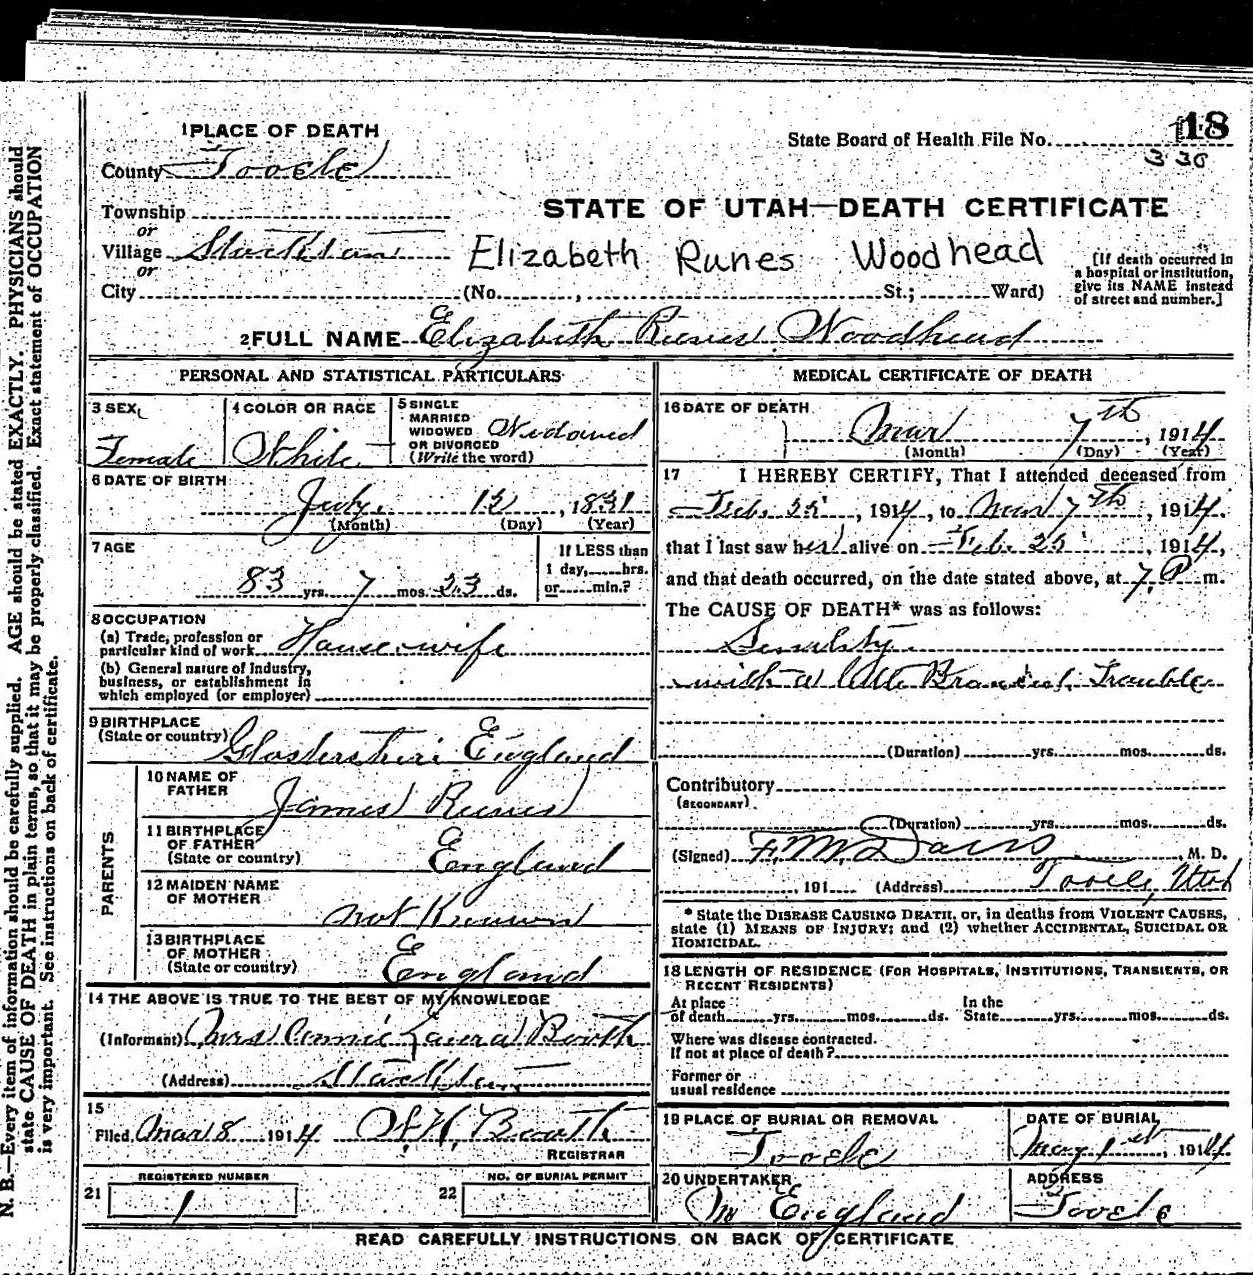 1 PLACE OF DEATH
County Tooele
State Board of Health File No. 18
330
Township
or
Village Stockton
or
City
STATE OF UTAH—DEATH CERTIFICATE
Elizabeth Runes Woodhead
(No. , St.; Ward)
[If death occurred in
a hospital or institution,
give its NAME instead
of street and number.]
2 FULL NAME Elizabeth Runes Woodhead
PERSONAL AND STATISTICAL PARTICULARS
3 SEX
Female
4 COLOR OR RACE
White
5 SINGLE
MARRIED
WIDOWED
OR DIVORCED
(Write the word)
Widowed
6 DATE OF BIRTH
July 12, 1831
(Month) (Day) (Year)
7 AGE
83 yrs. 7 mos. 23 ds.
If LESS than
1 day, hrs.
or min.?
8 OCCUPATION
(a) Trade, profession or
particular kind of work Housewife
(b) General nature of industry,
business, or establishment in
which employed (or employer)
9 BIRTHPLACE
(State or country) Glostershire England
PARENTS
10 NAME OF
FATHER
James Runes
11 BIRTHPLACE
OF FATHER
(State or country) England
12 MAIDEN NAME
OF MOTHER
not Known
13 BIRTHPLACE
OF MOTHER
(State or country) England
14 THE ABOVE IS TRUE TO THE BEST OF MY KNOWLEDGE
(Informant) Mrs Annie Laura Booth
(Address) Stockton
15
Filed Mar 8 1914 Booth
REGISTRAR
REGISTERED NUMBER
21 1
NO. OF BURIAL PERMIT
22
MEDICAL CERTIFICATE OF DEATH
16 DATE OF DEATH
Mar 7th, 1914
(Month) (Day) (Year)
17 I HEREBY CERTIFY, That I attended deceased from
Feb. 25, 1914, to Mar 7th, 1914.
that I last saw her alive on Feb. 25, 1914,
and that death occurred, on the date stated above, at 7 P m.
The CAUSE OF DEATH* was as follows:
Senility
with a little Bronchial Trouble
(Duration) yrs. mos. ds.
Contributory
(SECONDARY)
(Duration) yrs. mos. ds.
(Signed) F. M. Davis, M. D.
, 191 (Address) Tooele, Utah
* State the DISEASE CAUSING DEATH, or, in deaths from VIOLENT CAUSES,
state (1) MEANS OF INJURY; and (2) whether ACCIDENTAL, SUICIDAL OR
HOMICIDAL.
18 LENGTH OF RESIDENCE (FOR HOSPITALS, INSTITUTIONS, TRANSIENTS, OR
RECENT RESIDENTS)
At place of death yrs. mos. ds. In the State yrs. mos. ds.
Where was disease contracted.
If not at place of death?
Former or
usual residence
19 PLACE OF BURIAL OR REMOVAL
Tooele
DATE OF BURIAL
, 1914
20 UNDERTAKER
M England
ADDRESS
Tooele
READ CAREFULLY INSTRUCTIONS ON BACK OF CERTIFICATE
N. B.—Every item of information should be carefully supplied. AGE should be stated EXACTLY. PHYSICIANS should
state CAUSE OF DEATH in plain terms, so that it may be properly classified. Exact statement of OCCUPATION
is very important. See instructions on back of certificate.